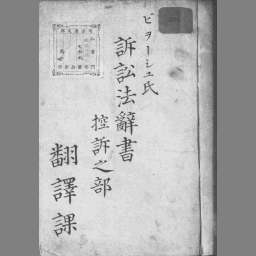 ビヲーシェ氏
訴訟法辭書
控訴之部
翻譯課